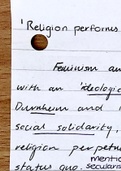 'Religion performs
Feminism an
with an 'ideologic
Durkheim and
social solidarity,
religion perpetu
mentio
status quo. secularis